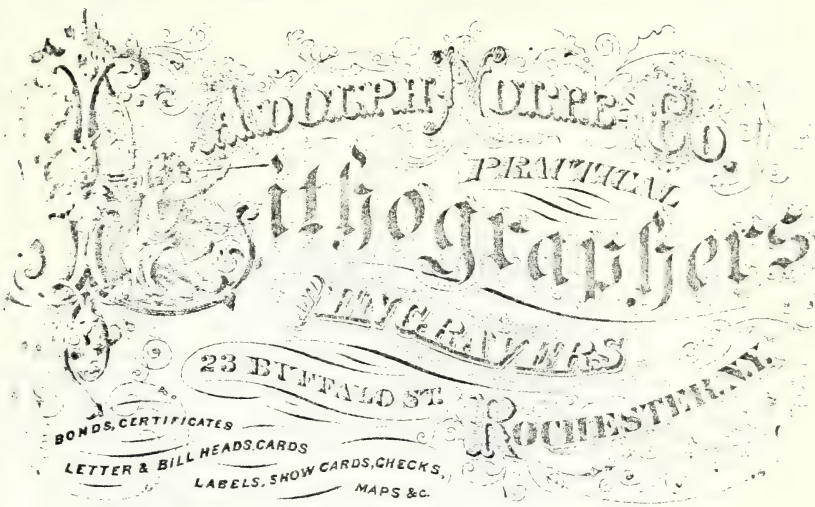 ADOLPH NOLTE & Co.
PRACTICAL
Lithographers
AND ENGRAVERS
23 BUFFALO ST.
ROCHESTER, N.Y.
BONDS, CERTIFICATES
LETTER & BILL HEADS, CARDS
LABELS, SHOW CARDS, CHECKS,
MAPS &c.